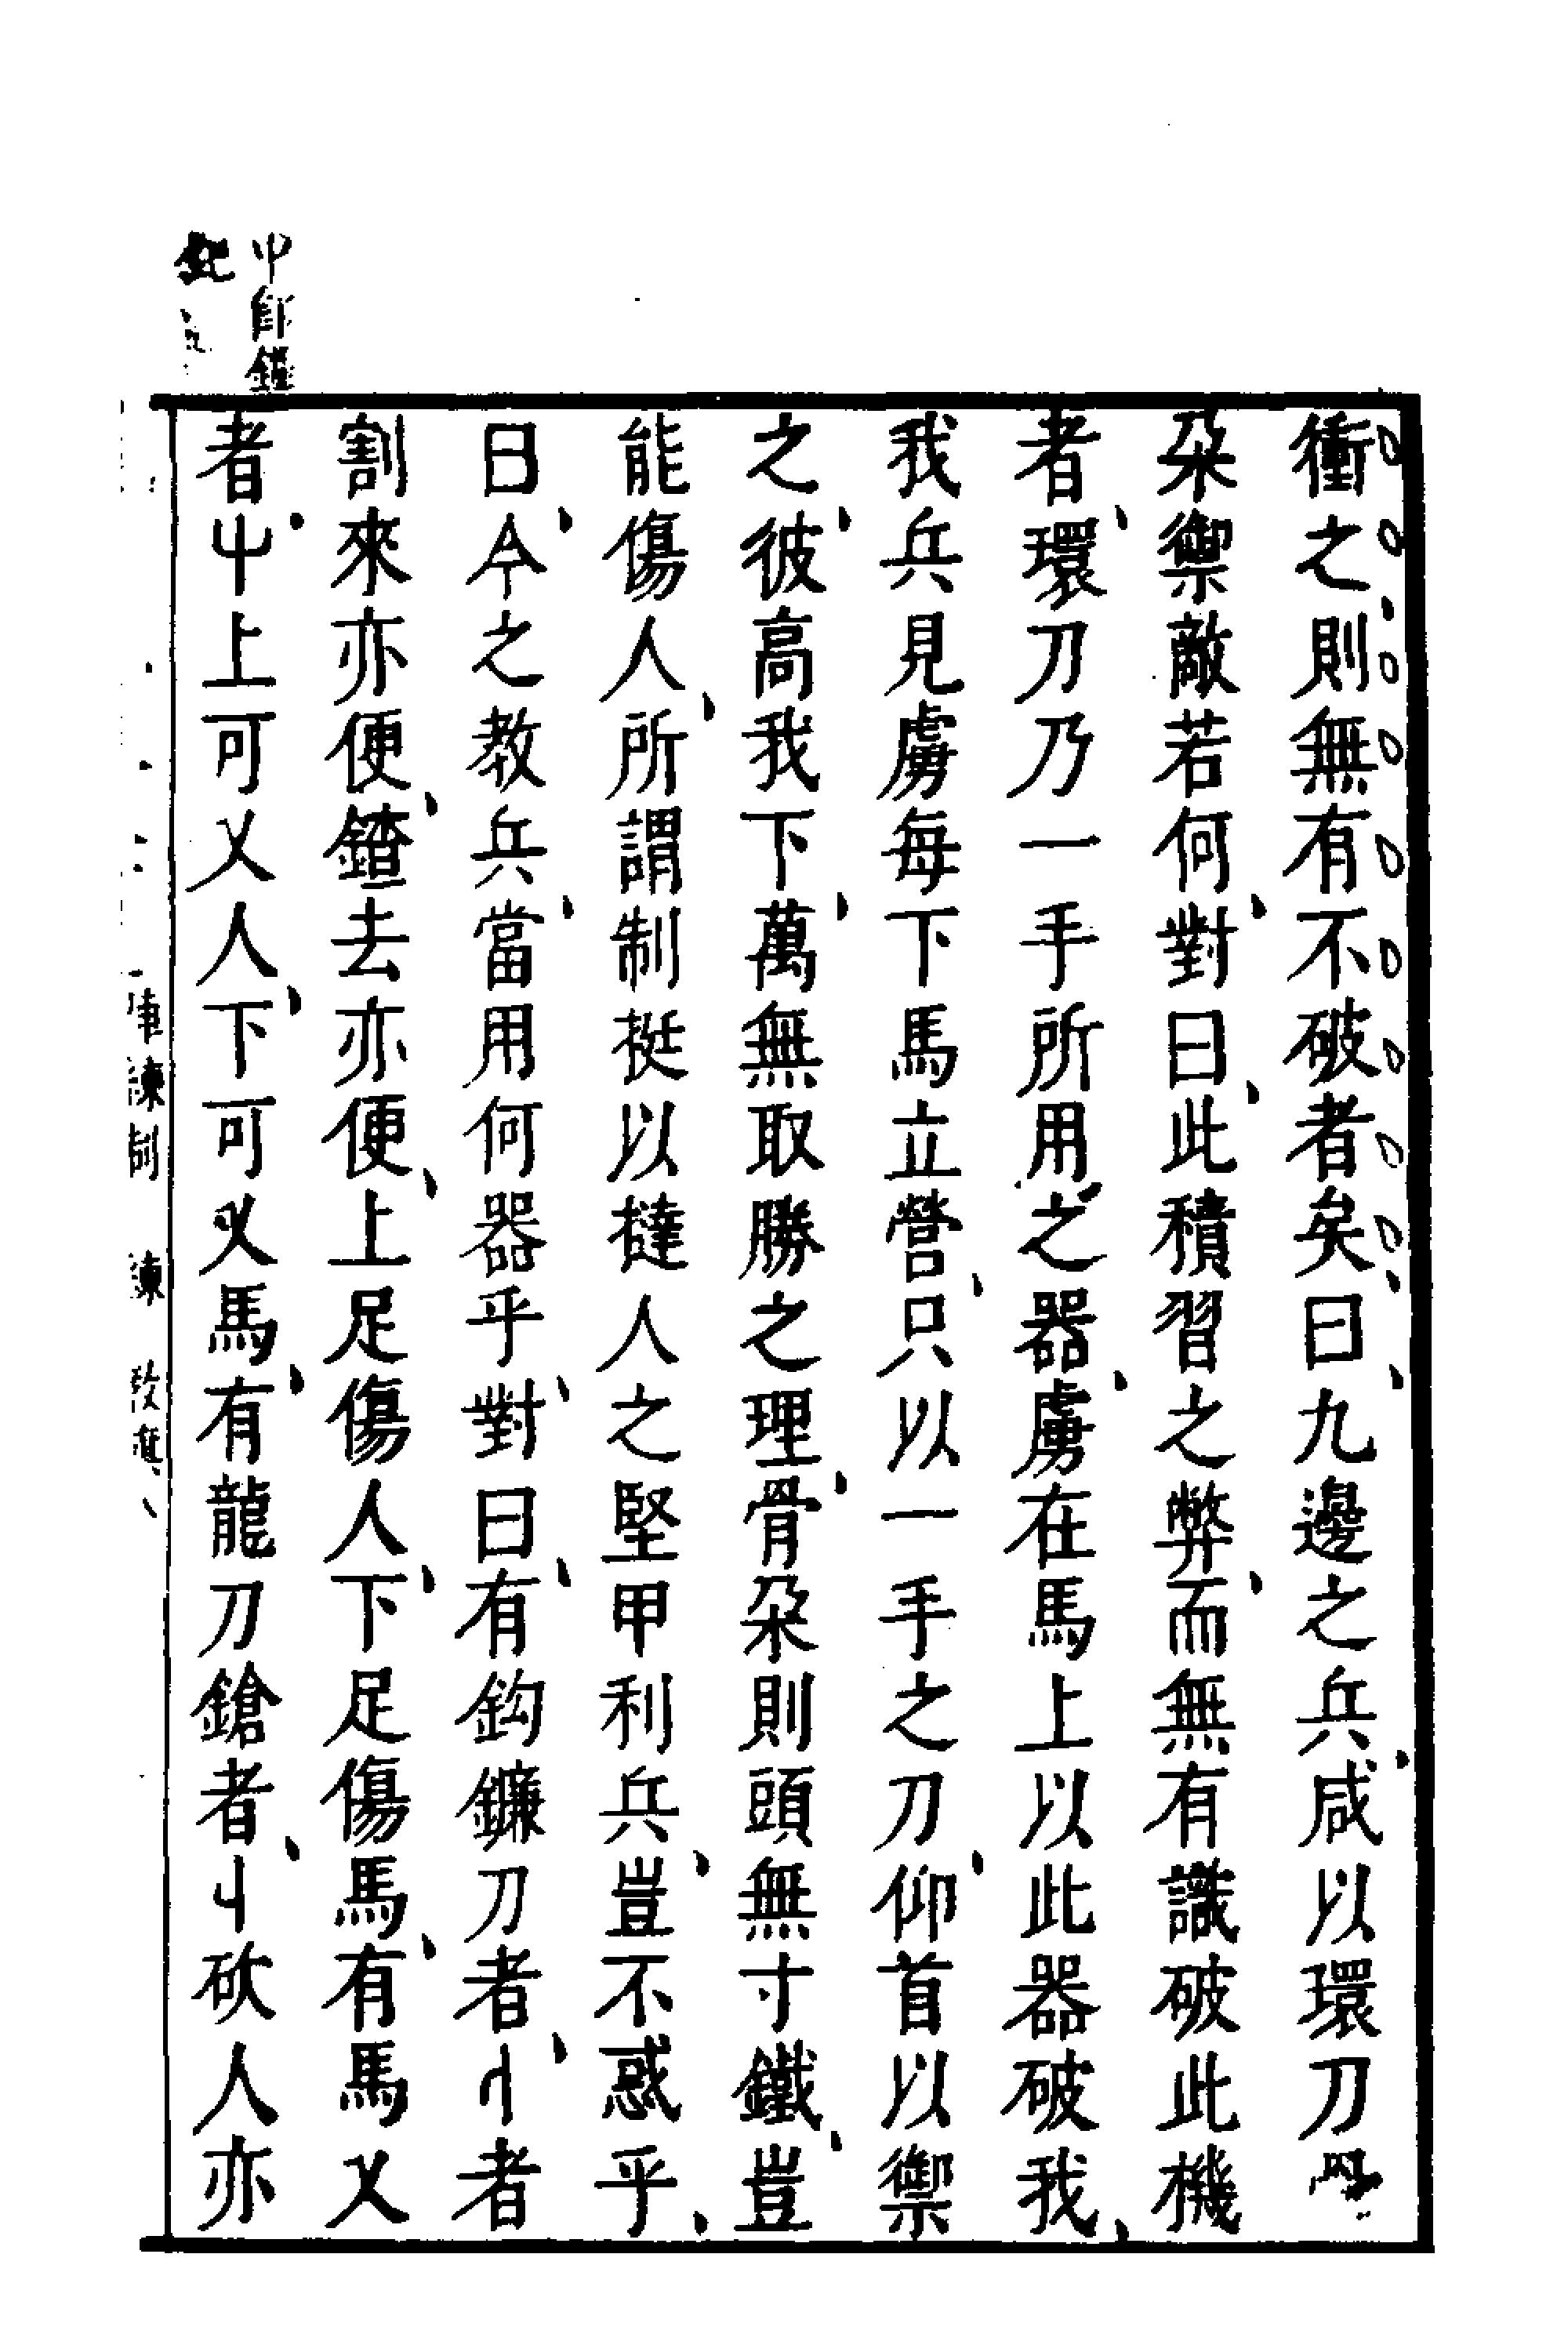 衝之則無有不破者矣曰九邊之兵咸以環刀
朶禦敵若何對曰此積習之弊而無有識破此機
者環刀乃一手所用之器虜在馬上以此器破我
我兵見虜每下馬立營只以一手之刀仰首以禦
之彼高我下萬無取勝之理骨朶則頭無寸鐵豈
能傷人所謂制挺以撻人之堅甲利兵豈不惑乎
曰今之教兵當用何器乎對曰有鈎鐮刀者者
割來亦便鍺去亦便上足傷人下足傷馬有馬㐅
者上可㐅人下可㐅馬有龍刀鎗者砍人亦
練 練 教